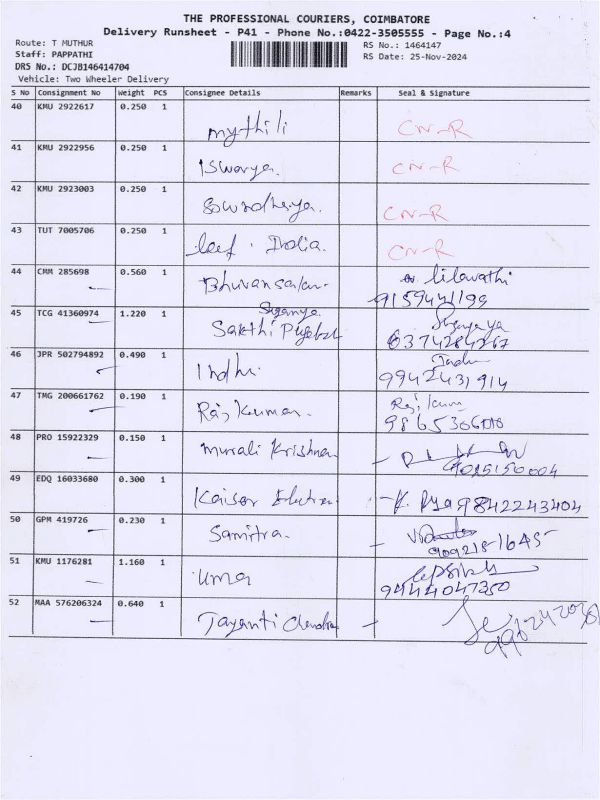 THE PROFESSIONAL COURIERS, COIMBATORE
Delivery Runsheet - P41 - Phone No.:0422-3505555 - Page No.:4
Route: T MUTHUR
RS No.: 1464147
Staff: PAPPATHI
RS Date: 25-Nov-2024
DRS No.: DCJB146414704
Vehicle: Two Wheeler Delivery
S No Consignment No Weight PCS Consignee Details Remarks Seal & Signature
40 KMU 2922617 0.250 1 Mythili CN-R
41 KMU 2922956 0.250 1 Iswarya. CN-R
42 KMU 2923003 0.250 1 Sowndharya. CN-R
43 TUT 7005706 0.250 1 leef. India. CN-R
44 CMM 285698 0.560 1 Bhuvansakar. lilawathi
9159441199
45 TCG 41360974 1.220 1 Sakthi
6374284267
46 JPR 502794892 0.490 1 Indhu.
9942431914
47 TMG 200661762 0.190 1 Raj Kumar. Raj kum
48 PRO 15922329 0.150 1 Murali Krishnan
9025150004
49 EDQ 16033680 0.300 1 Kaiser 9842243404
50 GPM 419726 0.230 1 Samitra.
51 KMU 1176281 1.160 1 Uma
9444047350
52 MAA 576206324 0.640 1 Jayanti Chandra